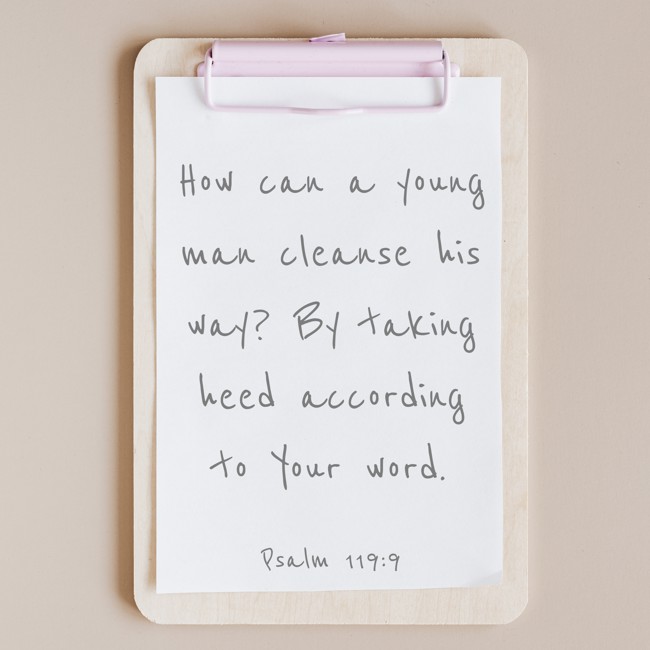 How can a young
man cleanse his
way? By taking
heed according
to Your word.
Psalm 119:9